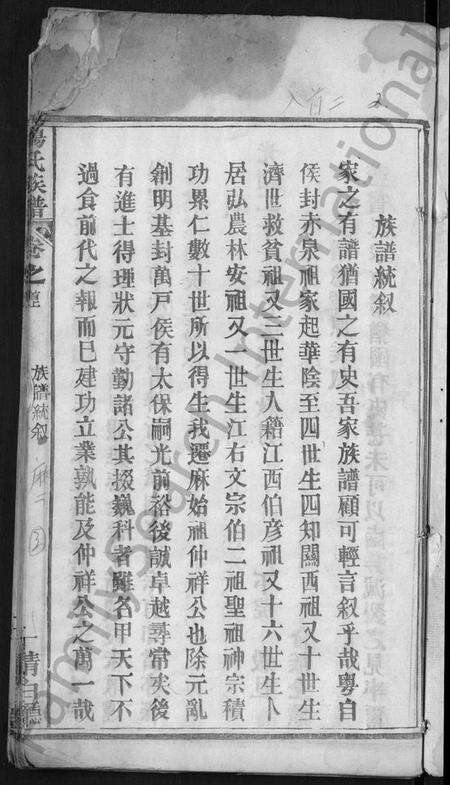 族譜統叙
家之有譜猶國之有史吾家族譜顧可輕言叙乎哉粤自
侯封赤泉祖家起華陰至四世生四知關西祖又十世生
濟世救貧祖又三世生人籍江西伯彦祖又十六世生卜
居弘農林安祖又一世生江右文宗伯二祖聖祖神宗積
功累仁數十世所以得生我遷麻始祖仲祥公也除元亂
創明基封萬戸侯有太保嗣光前裕後誠卓越尋常矣後
有進士得理狀元守勤諸公其掇巍科者雖名甲天下不
過食前代之報而已建功立業孰能及仲祥公之萬一哉
氏族譜
卷之
族譜統叙
③
清白
八首二
2
FamilySearch International